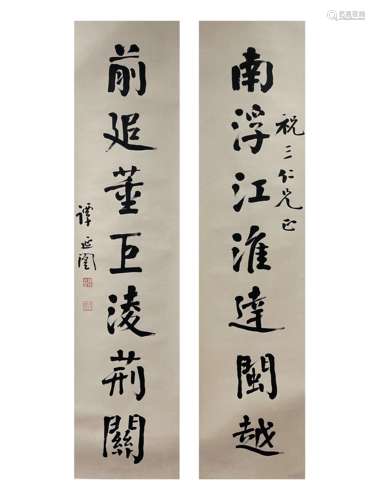 南浮江淮達閩越
祝三仁兄正
前追董巨淩荊關
譚延闓